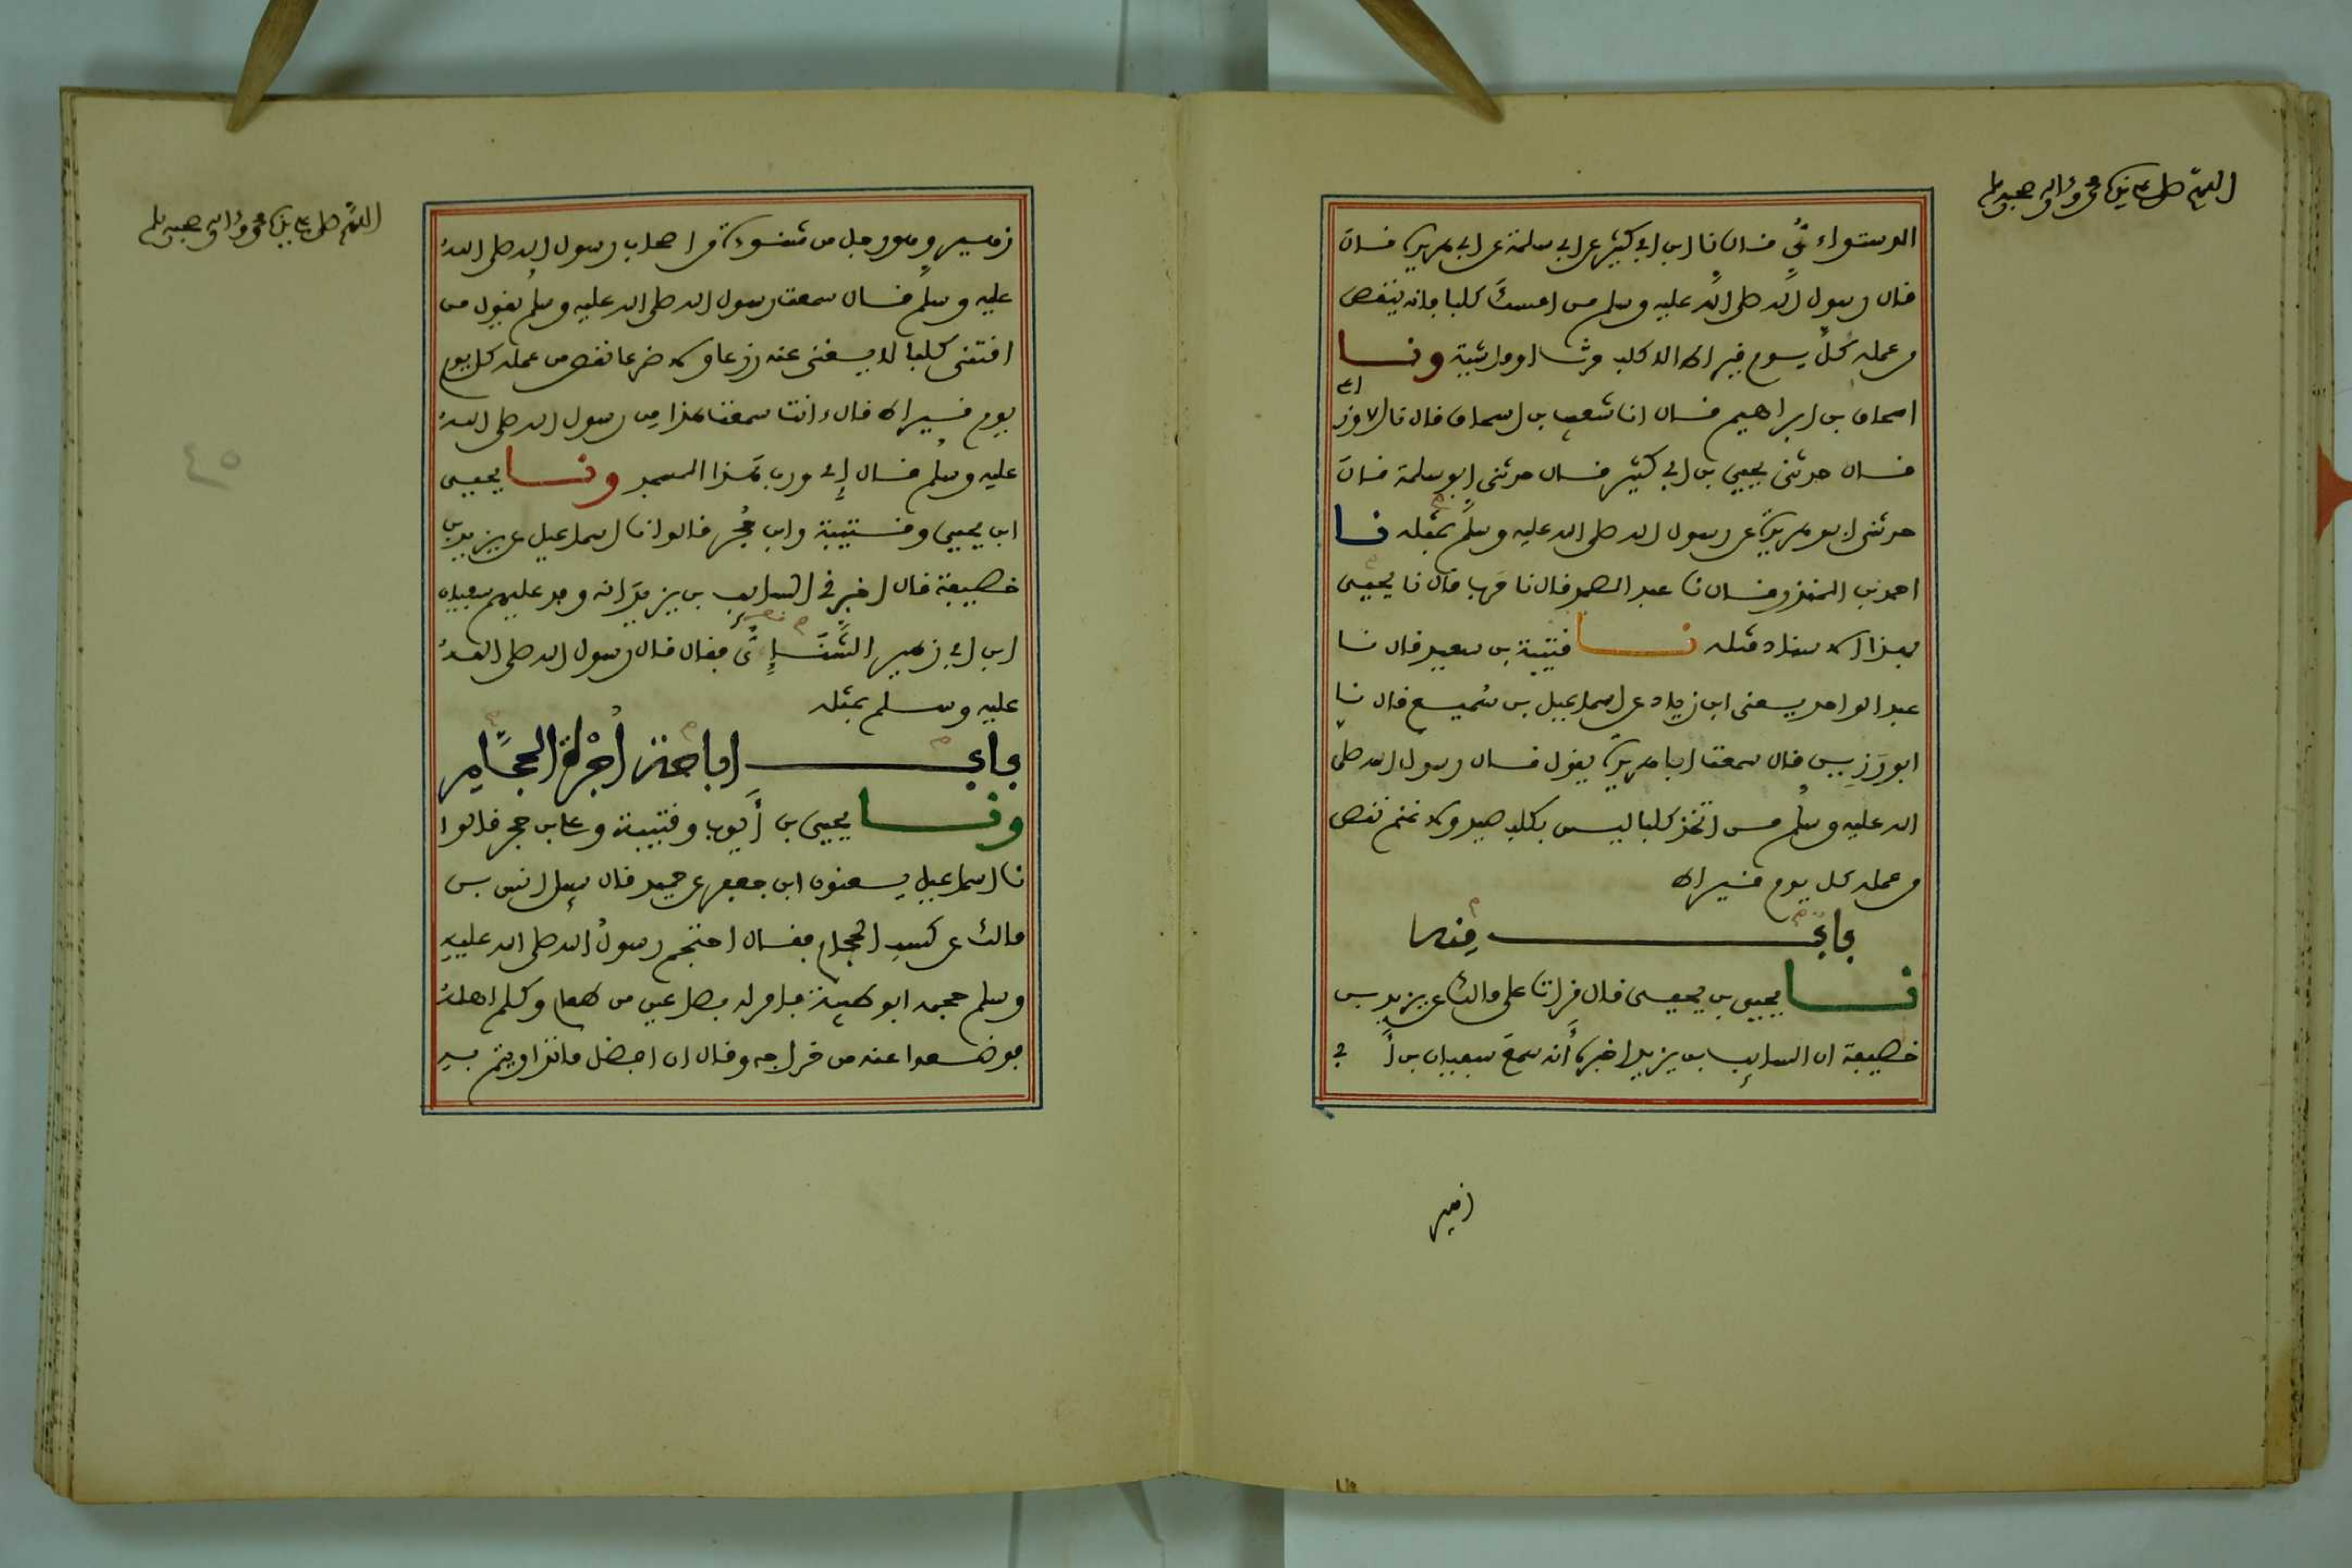 اللهم صل على نبيك محمد وءاله وصحبه وسلم
الدستواءىّ قال نا ابن ابي كثير عن ابي سلمة عن ابي هريرة قال
قال رسول الله صلى الله عليه وسلم من امسك كلبا فانه ينقص
من عمله كل يوم قيراط الا كلب حرث او ماشية ونا
اسحاق بن ابراهيم قال انا شعيب بن اسحاق قال نا الاوزاعي
قال حدثني يحيى بن ابي كثير قال حدثني ابو سلمة قال
حدثني ابو هريرة عن رسول الله صلى الله عليه وسلم بمثله نا
احمد بن المنذر قال نا عبد الصمد قال نا حرب قال نا يحيى
بهذا الاسناد مثله نا قتيبة بن سعيد قال نا
عبد الواحد يعني ابن زياد عن اسماعيل بن سُميع قال نا
ابو رَزِين قال سمعت ابا هريرة يقول قال رسول الله صلى
الله عليه وسلم من اتخذ كلبا ليس بكلب صيد ولا غنم نقص
من عمله كل يوم قيراط
باب منه
نا يحيى بن يحيى قال قرات على مالك عن يزيد بن
خصيفة ان السايب بن يزيد اخبره أنه سمع سفيان بن أبي
زهير
اللهم صل على نبيك محمد وءاله وصحبه وسلم
زهير وهو رجل من شنوءة من اصحاب رسول الله صلى الله
عليه وسلم قال سمعت رسول الله صلى الله عليه وسلم يقول من
اقتنى كلبا لا يغني عنه زرعا ولا ضرعا نقص من عمله كل يوم
يوم قيراط قال ءانت سمعت هذا من رسول الله صلى الله
عليه وسلم قال إي ورب هذا المسجد ونا يحيى
ابن يحيى وقتيبة وابن حُجر قالوا نا اسماعيل عن يزيد بن
خصيفة قال اخبرني السايب بن يزيد انه وفد عليهم سفيان
ابن ابي زهير الشَّنَإيُّ فقال قال رسول الله صلى الله
عليه وسلم بمثله
باب اباحة أُجْرة الحجَّام
ونا يحيى بن أيوب وقتيبة وعلي بن حجر قالوا
نا اسماعيل يعنون ابن جعفر عن حميد قال سيل انس بن
مالك عن كسب الحجام فقال احتجم رسول الله صلى الله عليه
وسلم حجمه ابو طيبة فامر له بصاعين من طعام وكلم اهله
فوضعوا عنه من خراجه وقال ان افضل ما تداويتم به
٤٥